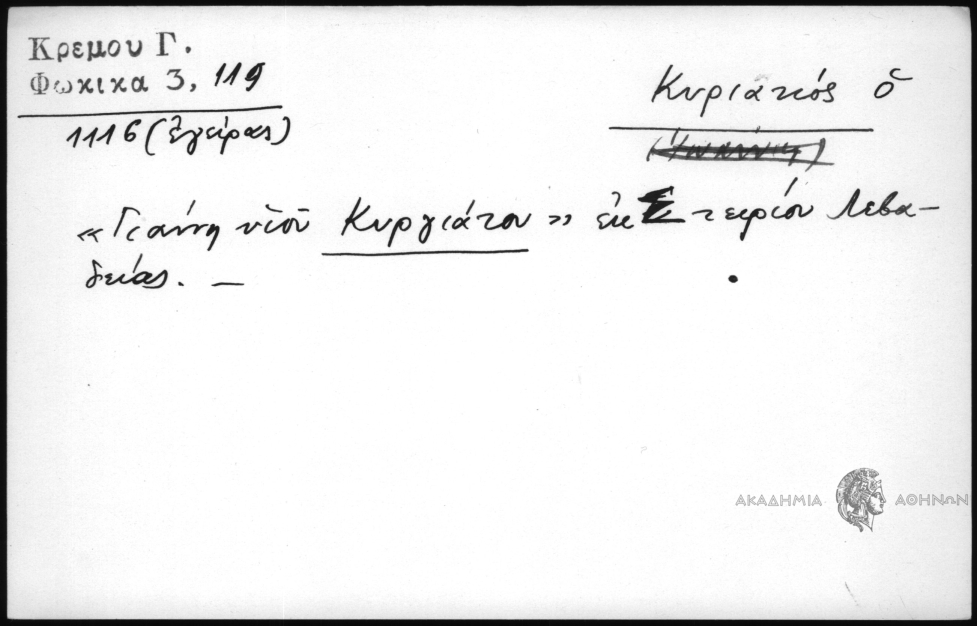 Κρεμου Γ.
Φωκικα 3, 119
1116 (ἐγείρας)
Κυριατκός ὁ
«Γιάννη υἱοῦ Κυργιάτου» ἐκ Στειρίου Λεβα-
δείας. —
ΑΚΑΔΗΜΙΑ ΑΘΗΝΩΝ